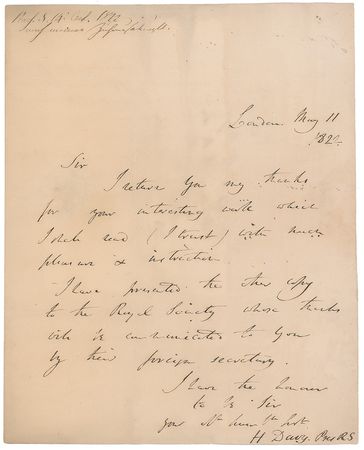 London May 11
1822
Sir
I return you my thanks
for your interesting work which
I shall read (I trust) with much
pleasure & instruction
I have presented the other copy
to the Royal Society whose thanks
will be communicated to you
by their foreign secretary.
I have the honour
to be Sir
your obt hum
H Davy. Pres RS